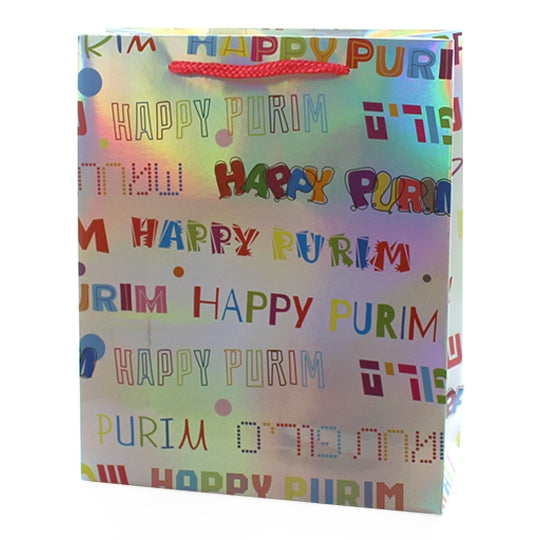 PURIM HAPPY PURIM
HAPPY PURIM פורים
שמחת HAPPY PURIM
HAPPY PURIM
PURIM HAPPY PURIM
HAPPY PURIM פורים
PURIM שמחת פורים
HAPPY PURIM